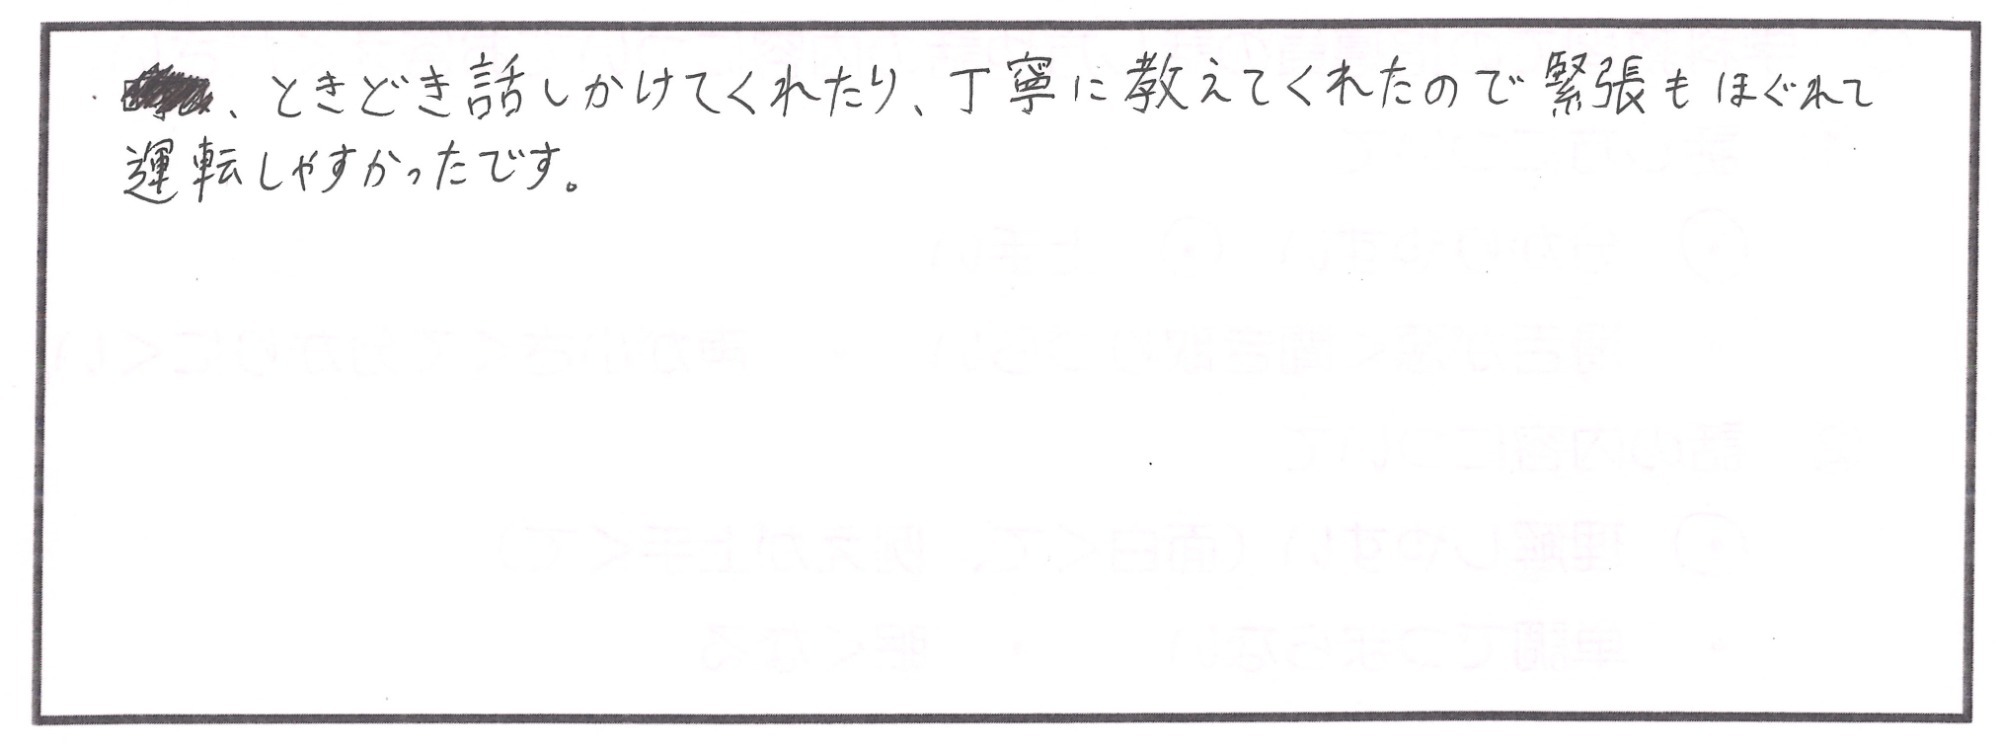 、ときどき話しかけてくれたり、丁寧に教えてくれたので緊張もほぐれて
運転しやすかったです。